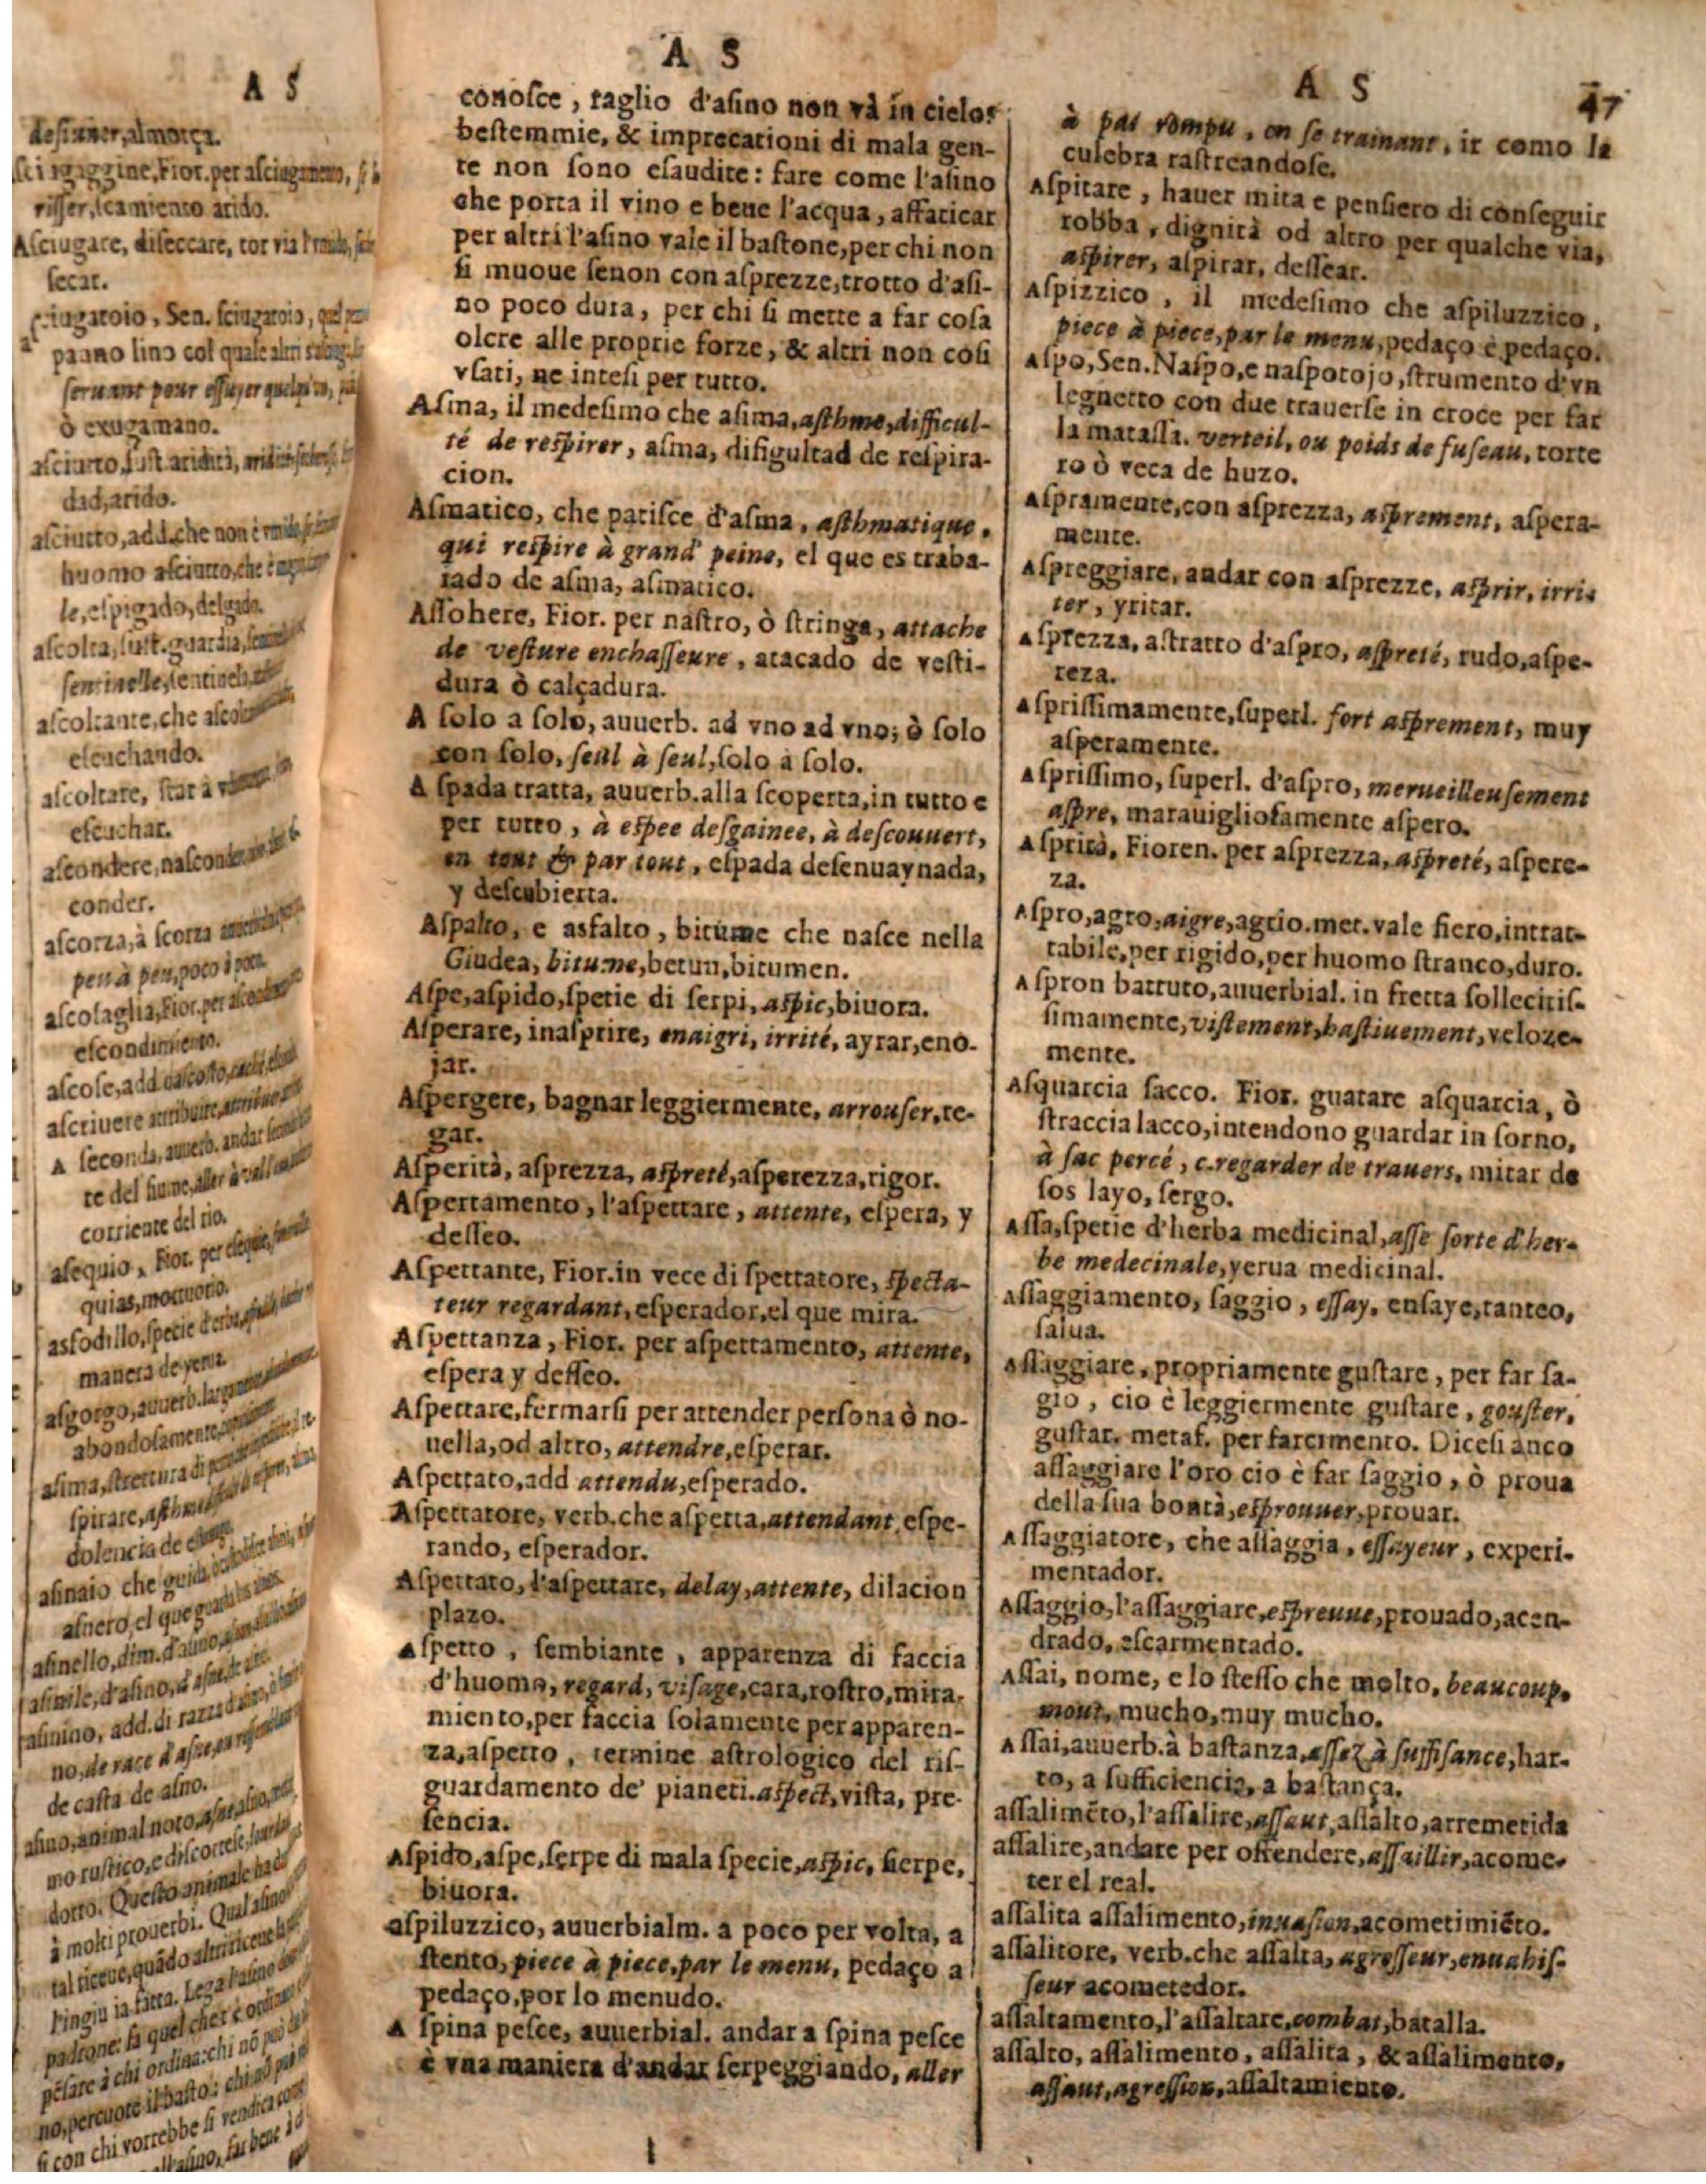 A S
desiuner, almorça.
risser, seamiento arido.
Asciugare, diseccare, tor via
secar.
panno lino col quale
seruant pour essuyer
ò exugamano.
dad, arido.
asciutto, add. che non è
huomo asciutto, che è
le, espigado, delgado.
ascolta, sust. guardia,
ascoltante, che
escuchando.
ascoltare, star a
escuchar.
ascondere,
conder.
ascorza, à scorza
peu à peu, poco à poco.
ascosaglia, Fior. per
escondimiento.
ascose, add.
ascriuere attribuire,
A seconda, auuerb. andar
te del fiume, aller à
corriente del rio.
asequio, Fior. per
quias, mortuorio.
asfodillo, specie d'erba,
manera de yerua.
asgorgo, auuerb.
abondosamente,
asima, strettura di
spirare,
dolencia de
asinaio che guida
asnero, el que guarda
asinello, dim. d'asino,
asinile, d'asino,
asinino, add. di razza d'asino,
no, de race d'asne,
de casta de asno.
asino, animal noto,
mo rustico, e discortese,
dotto. Questo animale ha
à molti prouerbi. Qual asino
tal riceue, quādo altri riceue
l'ingiuria fatta. Lega l'asino
padrone: fa quel che t'è
pēsare à chi ordina: chi nō può
no, percuote il basto: chi nō
si con chi vorrebbe si vendica
A S
conosce, raglio d'asino non và in cielo:
bestemmie, & imprecationi di mala gen-
te non sono esaudite: fare come l'asino
che porta il vino e beue l'acqua, affaticar
per altri l'asino vale il bastone, per chi non
si muoue senon con asprezze, trotto d'asi-
no poco dura, per chi si mette a far cosa
olcre alle proprie forze, & altri non così
vsati, ne intesi per tutto.
Asma, il medesimo che asima, asthme, difficul-
té de respirer, asma, difigultad de respira-
cion.
Asmatico, che patisce d'asma, asthmatique,
qui respire à grand' peine, el que es traba-
iado de asma, asmatico.
Assohere, Fior. per nastro, ò stringa, attache
de vesture enchasseure, atacado de vesti-
dura ò calçadura.
A solo a solo, auuerb. ad vno ad vno; ò solo
con solo, seul à seul, solo a solo.
A spada tratta, auuerb. alla scoperta, in tutto e
per tutto, à espee desgainee, à descouuert,
en tout & par tout, espada desenuaynada,
y descubierta.
Aspalto, e asfalto, bitume che nasce nella
Giudea, bitume, betun, bitumen.
Aspe, aspido, spetie di serpi, aspic, biuora.
Asperare, inasprire, enaigri, irrité, ayrar, eno-
jar.
Aspergere, bagnar leggiermente, arrouser, re-
gar.
Asperità, asprezza, aspreté, asperezza, rigor.
Aspertamento, l'aspettare, attente, espera, y
desseo.
Aspettante, Fior. in vece di spettatore, specta-
teur regardant, esperador, el que mira.
Aspettanza, Fior. per aspettamento, attente,
espera y desseo.
Aspettare, fermarsi per attender persona ò no-
uella, od altro, attendre, esperar.
Aspettato, add attendu, esperado.
Aspettatore, verb. che aspetta, attendant, espe-
rando, esperador.
Aspettato, l'aspettare, delay, attente, dilacion
plazo.
Aspetto, sembiante, apparenza di faccia
d'huomo, regard, visage, cara, rostro, mira-
miento, per faccia solamente per apparen-
za, aspetto, termine astrologico del ris-
guardamento de' pianeti. aspect, vista, pre-
sencia.
Aspido, aspe, serpe di mala specie, aspic, sierpe,
biuora.
aspiluzzico, auuerbialm. a poco per volta, a
stento, piece à piece, par le menu, pedaço a
pedaço, por lo menudo.
A spina pesce, auuerbial. andar a spina pesce
è vna maniera d'andar serpeggiando, aller
A S 47
à pas rompu, en se trainant, ir como la
culebra rastreandose.
Aspitare, hauer mira e pensiero di conseguir
robba, dignità od altro per qualche via,
aspirer, aspirar, dessear.
Aspizzico, il medesimo che aspiluzzico,
piece à piece, par le menu, pedaço e pedaço.
Aspo, Sen. Naspo, e naspotojo, strumento d'vn
legnetto con due trauerse in croce per far
la matassa. verteil, ou poids de fuseau, torte
ro ò reca de huzo.
Aspramente, con asprezza, asprement, aspera-
mente.
Aspreggiare, andar con asprezze, asprir, irri-
ter, yritar.
Asprezza, astratto d'aspro, aspreté, rudo, aspe-
reza.
Asprissimamente, superl. fort asprement, muy
asperamente.
Asprissimo, superl. d'aspro, merueilleusement
aspre, marauigliosamente aspero.
Asprità, Fioren. per asprezza, aspreté, aspere-
za.
Aspro, agro, aigre, agrio. met. vale fiero, intrat-
tabile, per rigido, per huomo stranco, duro.
A spron battuto, auuerbial. in fretta sollecitis-
simamente, vistement, hastiuement, veloze-
mente.
Asquarcia sacco. Fior. guatare asquarcia, ò
straccia sacco, intendono guardar in torno,
à sac percé, c. regarder de trauers, mirar de
sos layo, sergo.
Assa, spetie d'herba medicinal, asse sorte d'her-
be medecinale, yerua medicinal.
Assaggiamento, saggio, essay, ensaye, tanteo,
salua.
Assaggiare, propriamente gustare, per far sa-
gio, cio è leggiermente gustare, gouster,
gustar. metaf. per farcimento. Dicesi anco
assaggiare l'oro cio è far saggio, ò proua
della sua bontà, esprouuer, prouar.
Assaggiatore, che assaggia, essayeur, experi-
mentador.
Assaggio, l'assaggiare, espreuue, prouado, acen-
drado, escarmentado.
Assai, nome, e lo stesso che molto, beaucoup,
mout, mucho, muy mucho.
Assai, auuerb. à bastanza, assez à suffisance, har-
to, a sufficiencia, a bastança.
assalimēto, l'assalire, assaut, assalto, arremetida
assalire, andare per offendere, assaillir, acome-
ter el real.
assalita assalimento, inuasion, acometimiēto.
assalitore, verb. che assalta, agresseur, enuahis-
seur acometedor.
assaltamento, l'assaltare, combat, batalla.
assalto, assalimento, assalita, & assalimento,
assaut, agression, assaltamiento.